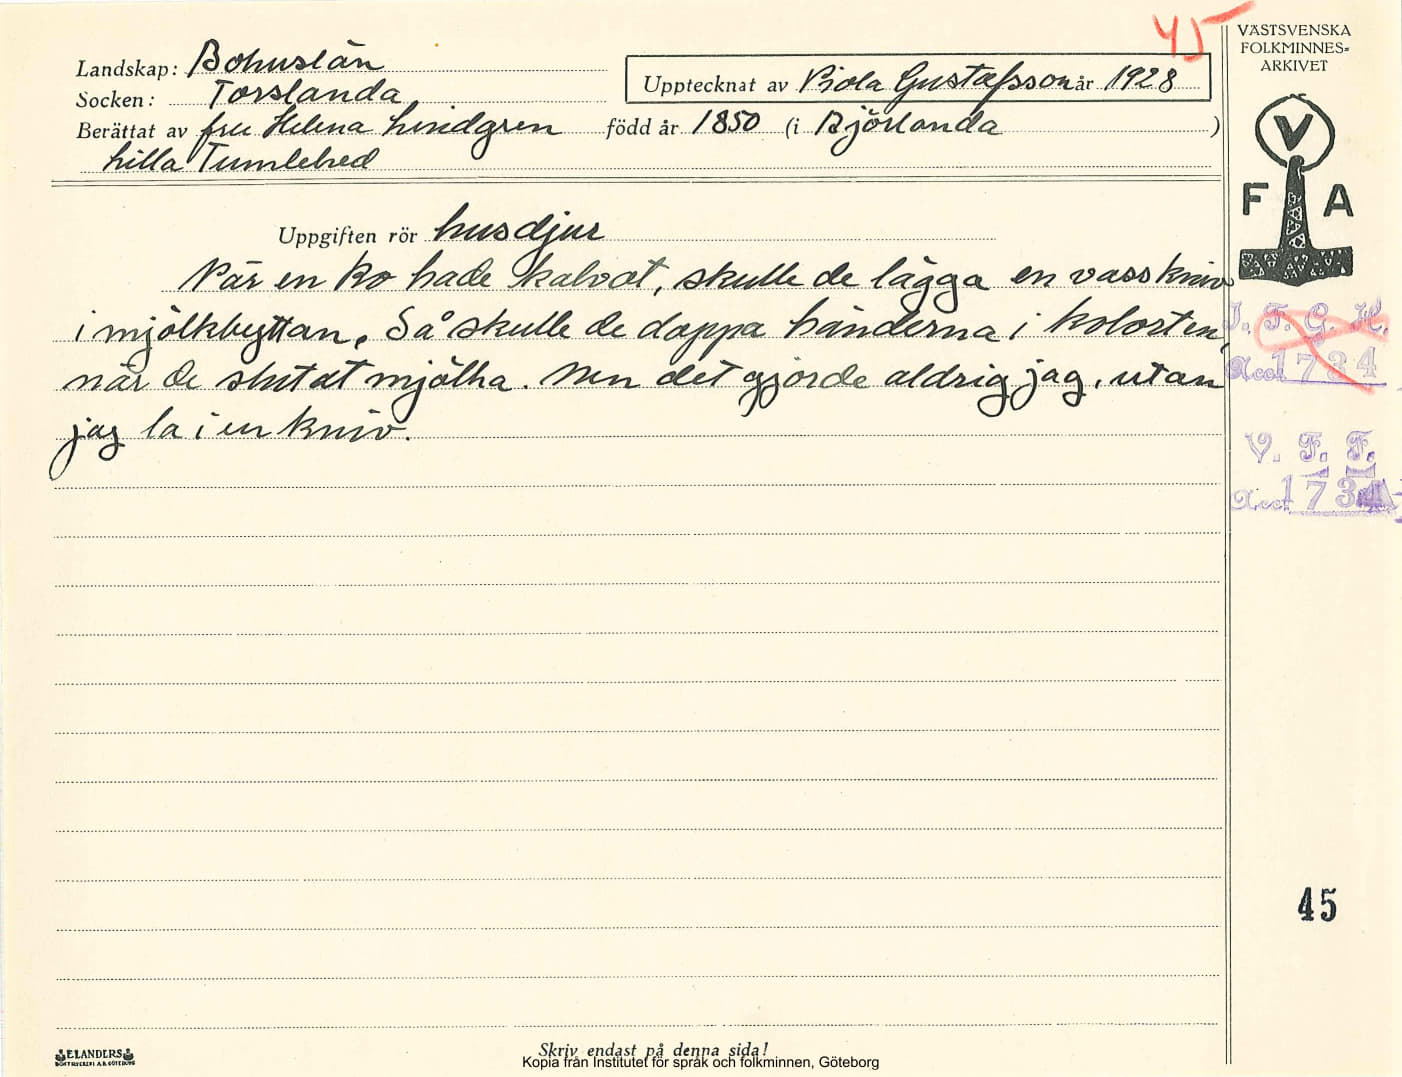 45
VÄSTSVENSKA
FOLKMINNES=
ARKIVET
Landskap: Bohuslän
Upptecknat av Viola Gustafsson år 1928
Socken: Torslanda
Berättat av fru Helena Lindgren född år 1850 (i Björlanda )
Lilla Tumlehed
V
F A
Uppgiften rör husdjur
När en ko hade kalvat, skulle de lägga en vass kniv
i mjölkbyttan. Så skulle de doppa händerna i kolorten,
när de slutat mjölka. Men det gjorde aldrig jag, utan
jag la i en kniv.
I. F. G. H.
Acc. 1734
V. F. F.
Acc. 1734
45
ELANDERS
BOKTRYCKERI A.B. GÖTEBORG
Skriv endast på denna sida!
Kopia från Institutet för språk och folkminnen, Göteborg